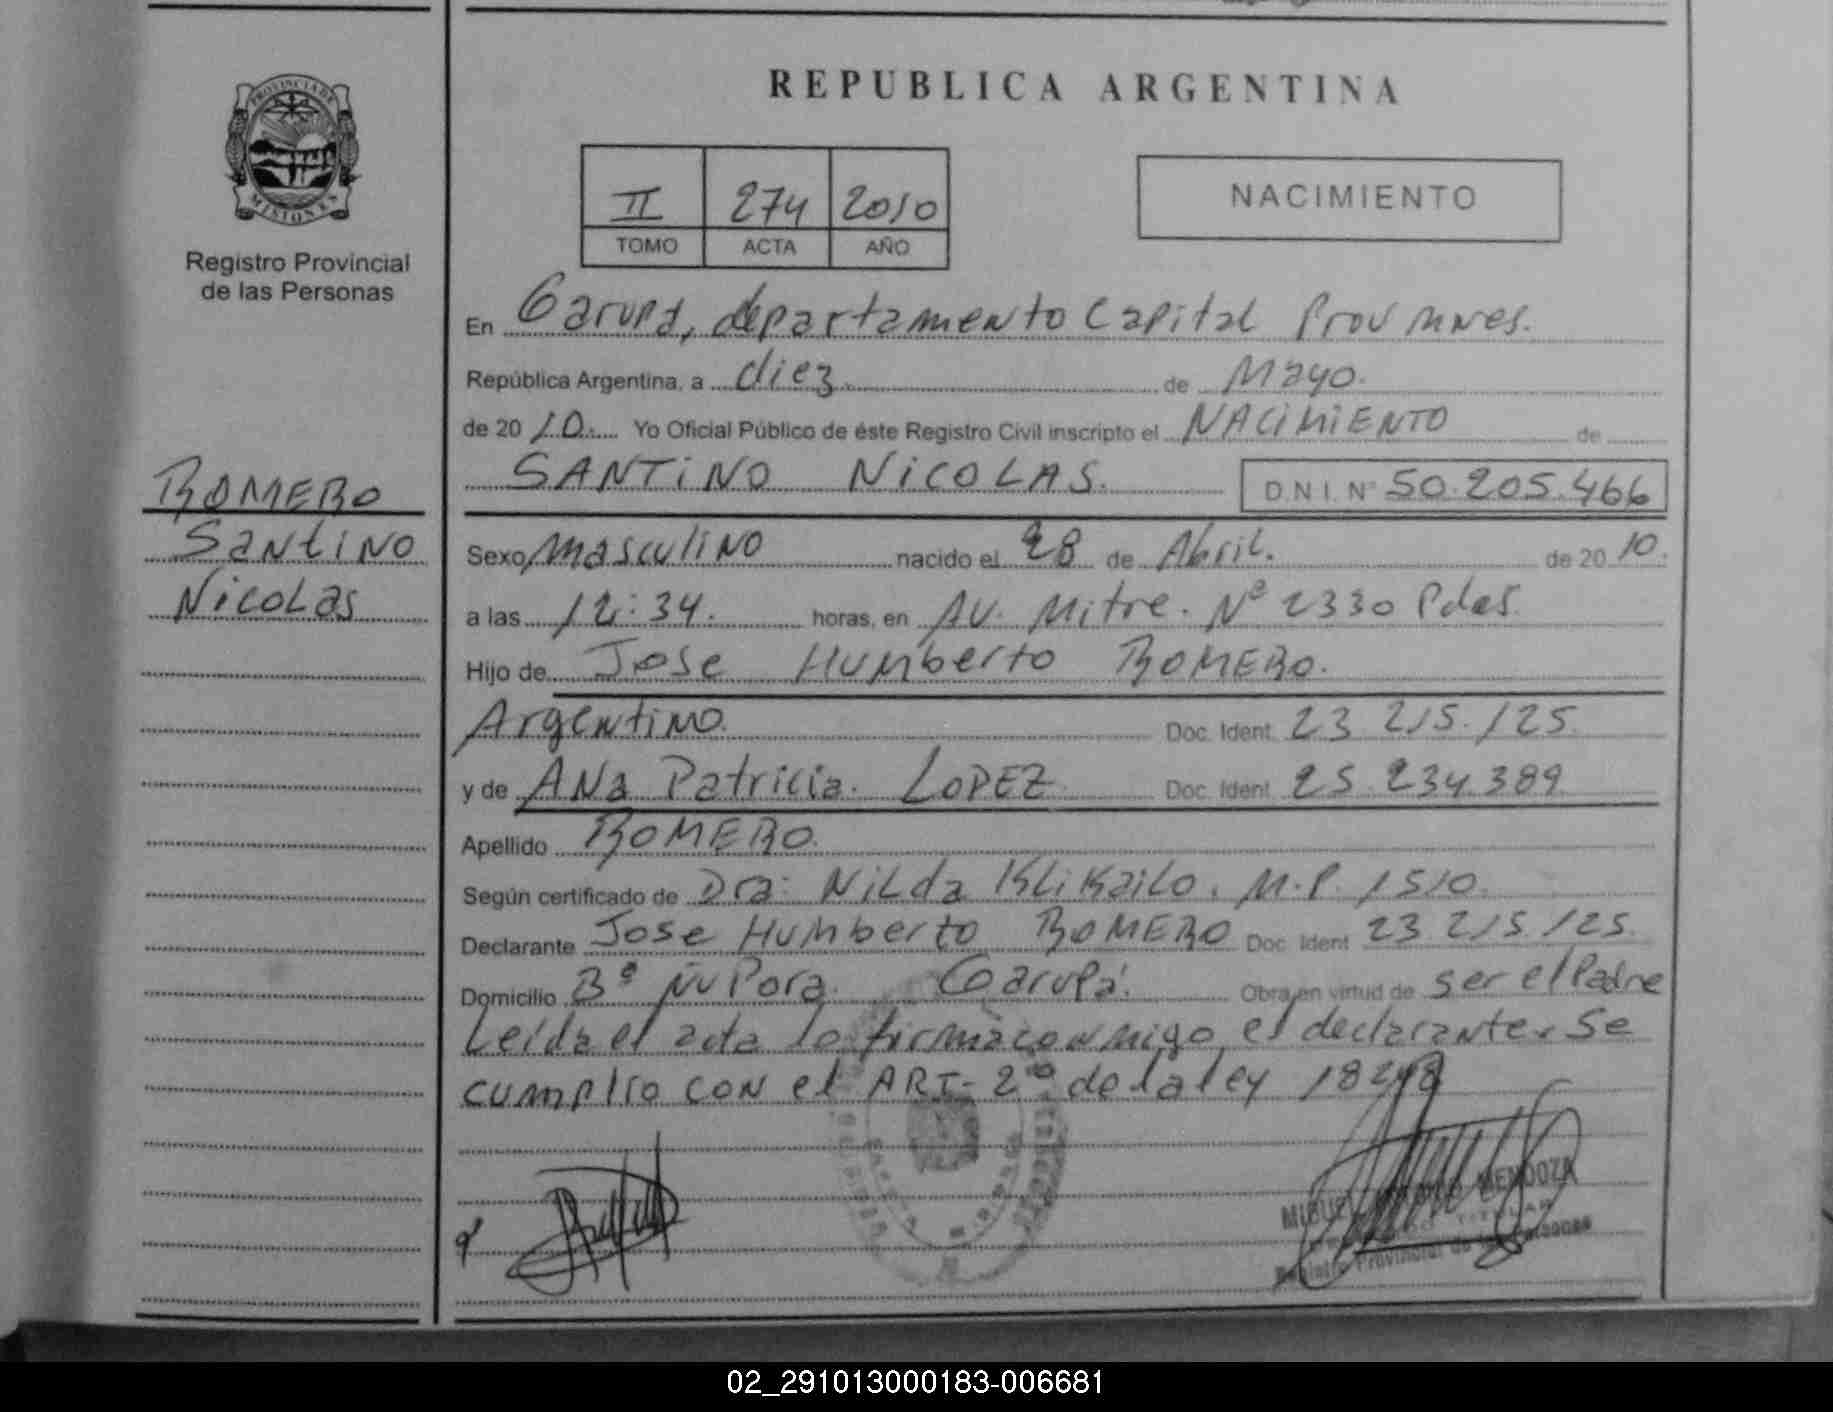 REPUBLICA ARGENTINA
PROVINCIA DE
MISIONES
Registro Provincial
de las Personas
II 274 2010
TOMO ACTA AÑO
NACIMIENTO
En Garupa, departamento Capital Prov Mnes.
República Argentina, a diez de Mayo.
de 20 10. Yo Oficial Público de éste Registro Civil inscripto el NACIMIENTO de
SANTINO NICOLAS. D.N.I. Nº 50.205.466
ROMERO
Santino
Nicolas
Sexo masculino nacido el 28 de Abril. de 20 10.
a las 12:34. horas, en Av. Mitre. Nº 2330 Pdas.
Hijo de Jose Humberto ROMERO.
Argentino. Doc. Ident. 23 215.125.
y de Ana Patricia. LOPEZ Doc. Ident. 25.234.389
Apellido ROMERO.
Según certificado de Dra: Nilda Klikailo. M.P. 1510.
Declarante Jose Humberto ROMERO Doc. Ident. 23.215.125.
Domicilio Bº Ñu Pora. Garupá. Obra en virtud de ser el Padre
Leída el acta la firma conmigo el declarante. Se
cumplio con el ART- 2º de la ley 18248
MENDOZA
TITULAR
Registro Provincial de las Personas
02_291013000183-006681